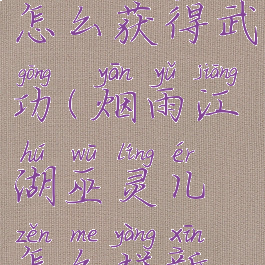 怎么获得武
gōng yān yǔ jiāng
功(烟雨江
hú wū líng ér
湖巫灵儿
zěn me yàng xīn
怎么样新